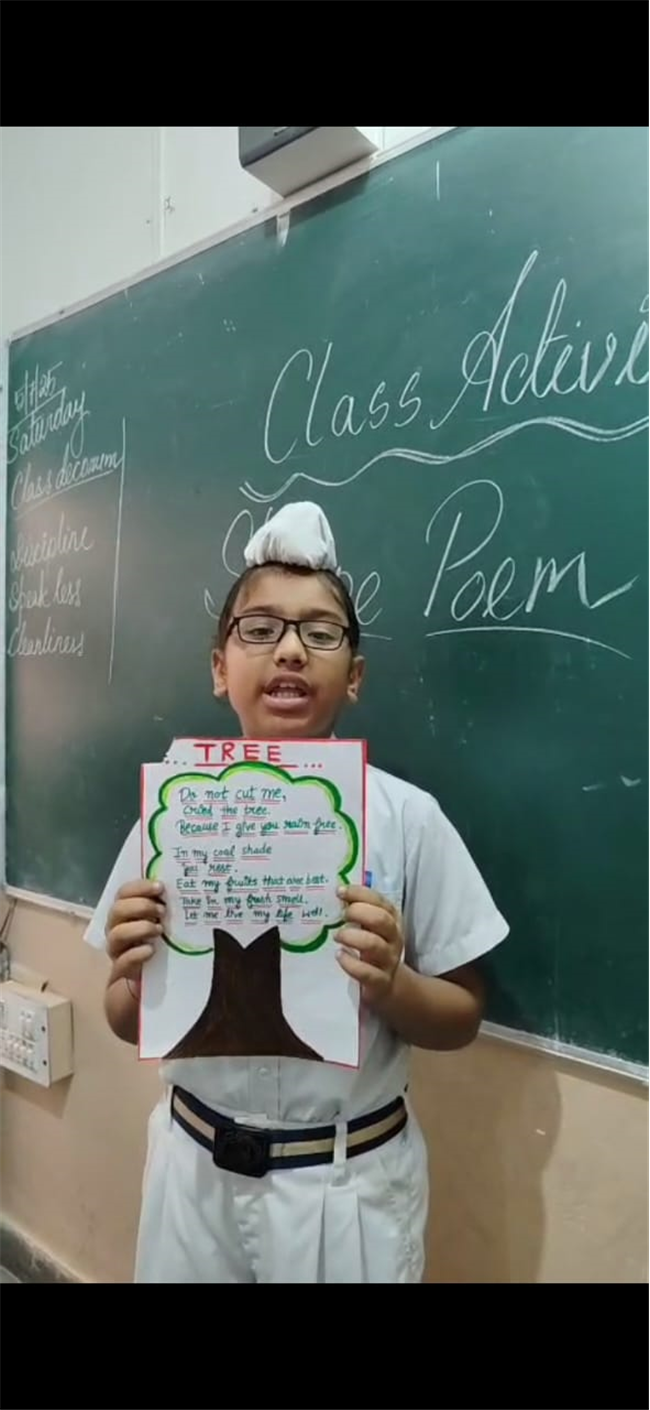 5/7/25
Saturday
Class decorum
Discipline
Speak less
Cleanliness
Class Activi
Poem
... TREE ...
Do not cut me,
Cried the tree.
Because I give you rain free.
In my cool shade
you rest.
Eat my fruits that are best.
Take in my fresh smell.
Let me live my life well.